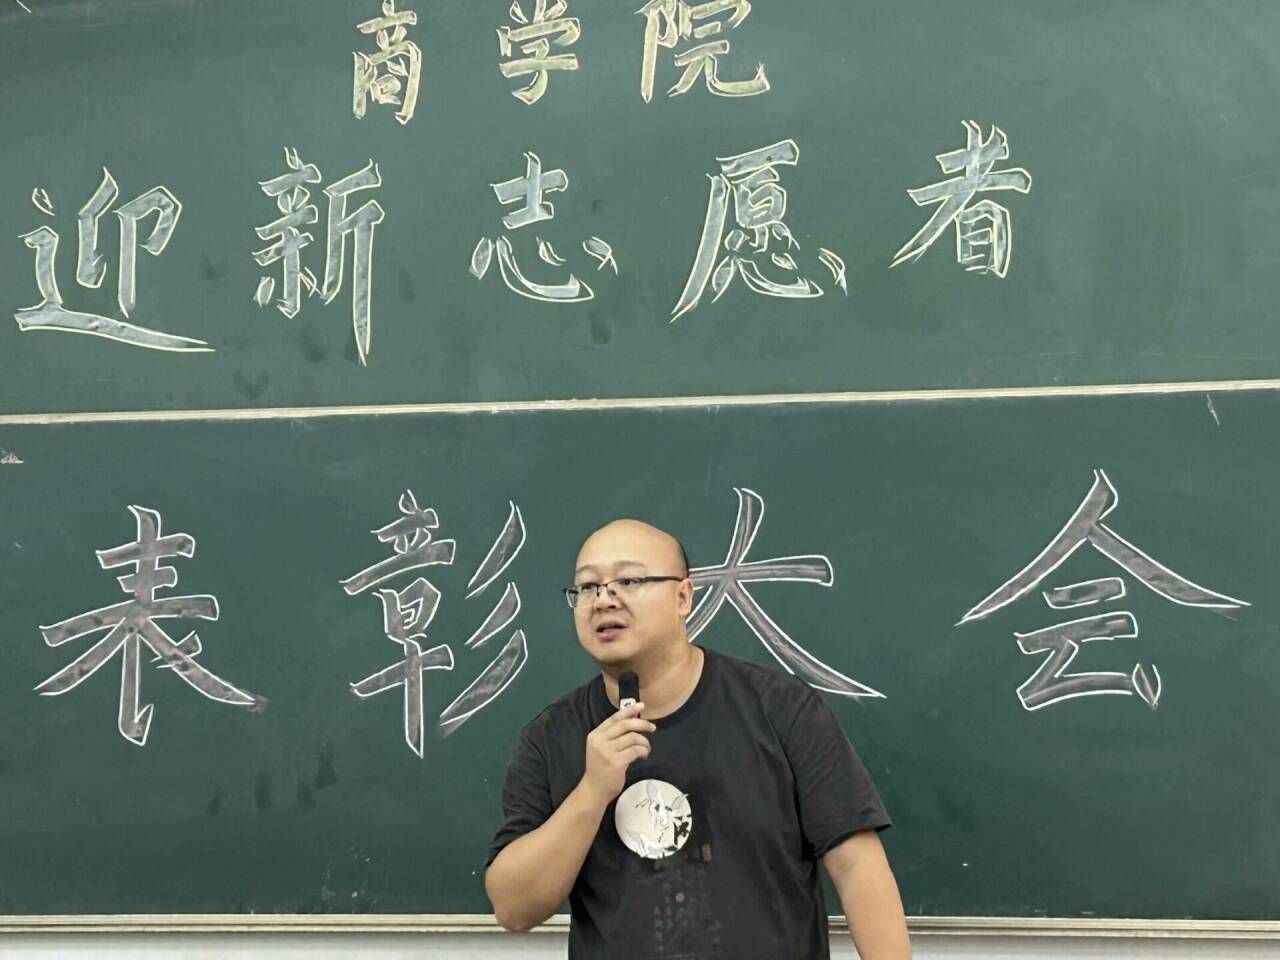 商学院
迎新志愿者
表彰大会